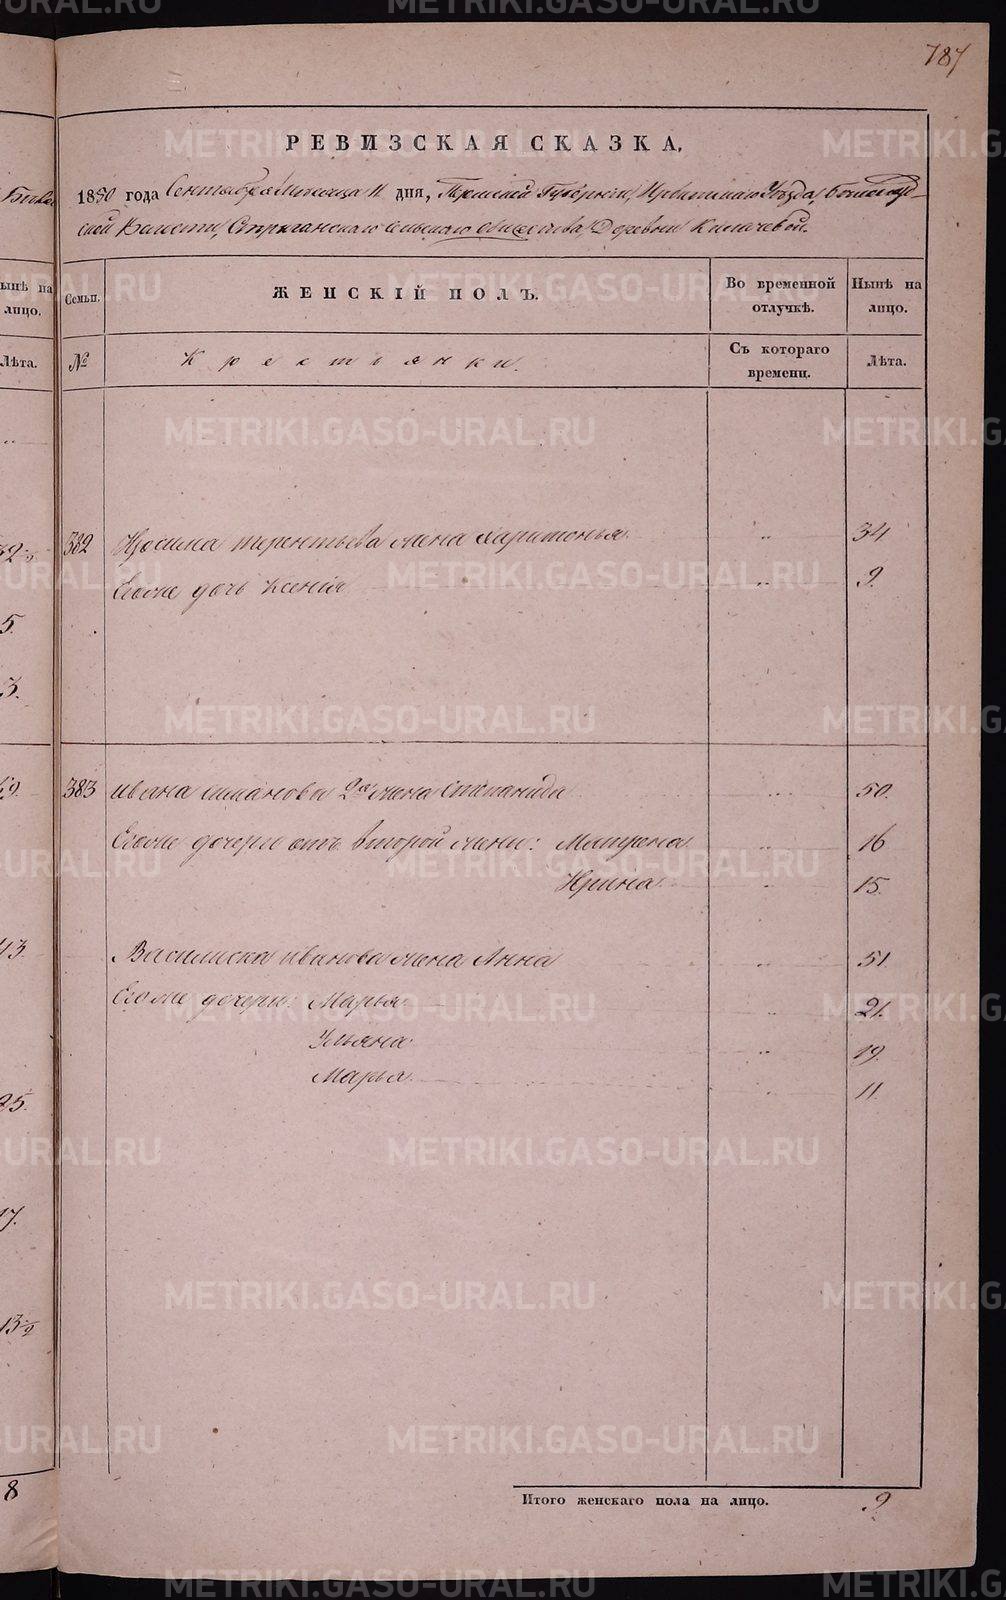 787
РЕВИЗСКАЯ СКАЗКА.
1850 года Сентября Месяца 11 дня, Пермской Губернии, Ирбитскаго Уезда,
ской Волости, Стриганскаго Сельскаго общества, Деревни Килачевой.
Семьи.
ЖЕНСКІЙ ПОЛЪ.
Во временной отлучкѣ.
Нынѣ на лицо.
№
Крестьянки.
Съ котораго времени.
Лѣта.
382 Терентьева жена Харитонья 34
Егоже дочь Ксенія 9.
383 Ивана 2я жена Степанида 50.
Егоже дочери отъ второй жены: Матрена 16
Ирина 15.
Василиска Иванова жена Анна 51.
Егоже дочери: Марья 21.
Ульяна 19.
Марья 11.
Итого женскаго пола на лицо. 9.
нынѣ на лицо.
Лѣта.
5.
3.
49.
43.
25.
17.
8
METRIKI.GASO-URAL.RU